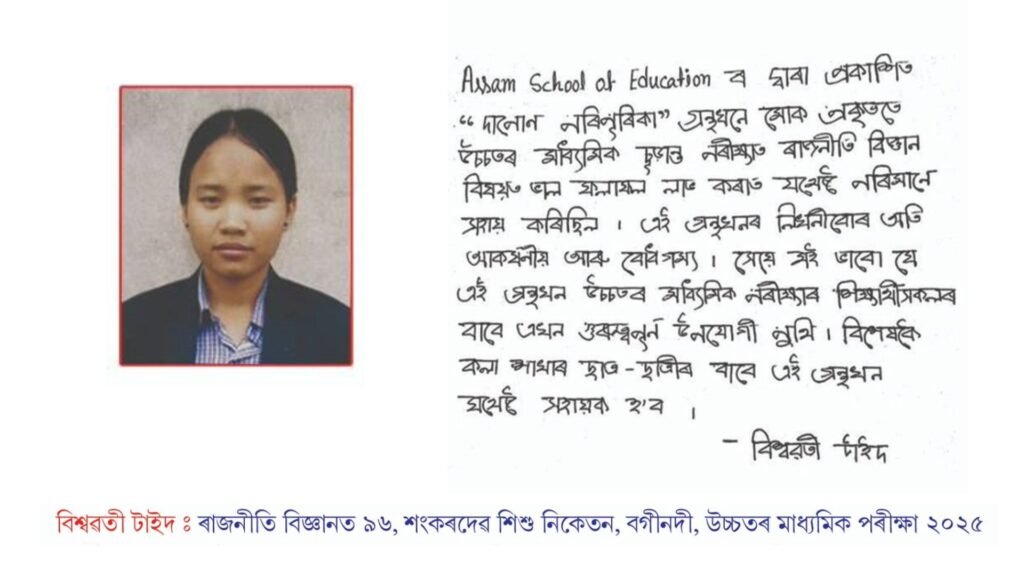 Assam School of Education ৰ দ্বাৰা প্ৰকাশিত
“দাপোণ পৰিপূৰিকা” গ্ৰন্থখনে মোক প্ৰকৃততে
উচ্চতৰ মাধ্যমিক চূড়ান্ত পৰীক্ষাত ৰাজনীতি বিজ্ঞান
বিষয়ত ভাল ফলাফল লাভ কৰাত যথেষ্ট পৰিমাণে
সহায় কৰিছিল । এই গ্ৰন্থখনৰ লিখনীবোৰ অতি
আকৰ্ষনীয় আৰু বোধগম্য । সেয়ে মই ভাবো যে
এই গ্ৰন্থখন উচ্চতৰ মাধ্যমিক পৰীক্ষাৰ শিক্ষাৰ্থীসকলৰ
বাবে এখন গুৰুত্বপূৰ্ন উপযোগী পুথি । বিশেষকৈ
কলা শাখাৰ ছাত্ৰ-ছাত্ৰীৰ বাবে এই গ্ৰন্থখন
যথেষ্ট সহায়ক হ'ব ।
– বিশ্বৱতী টাইদ
বিশ্বৱতী টাইদ ঃ ৰাজনীতি বিজ্ঞানত ৯৬, শংকৰদেৱ শিশু নিকেতন, বগীনদী, উচ্চতৰ মাধ্যমিক পৰীক্ষা ২০২৫